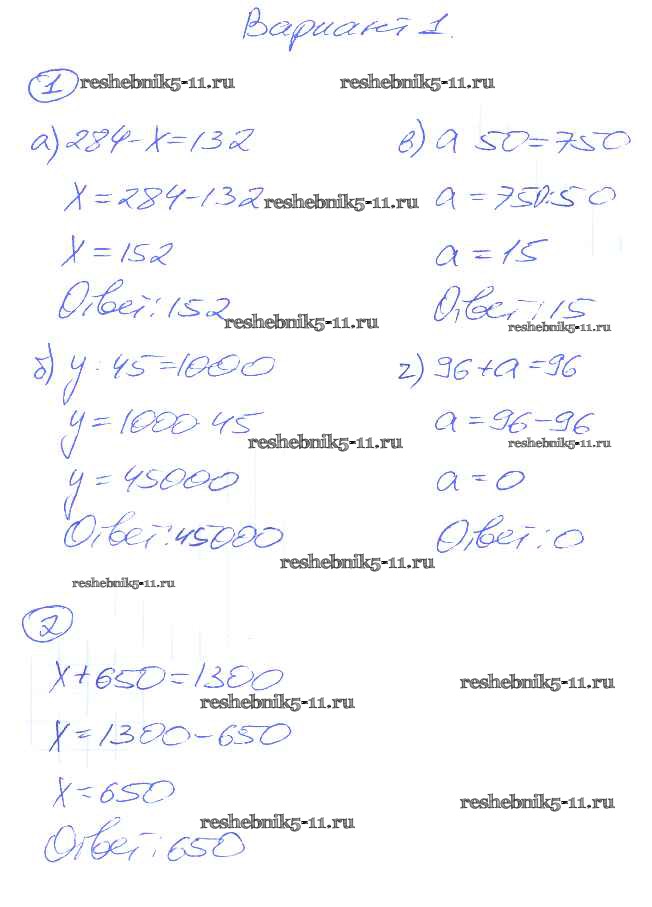 Вариант 1.
1 reshebnik5-11.ru reshebnik5-11.ru
а) 284-x=132
x=284-132 reshebnik5-11.ru
x=152
Ответ: 152 reshebnik5-11.ru
б) y:45=1000
y=1000 45
reshebnik5-11.ru
y=45000
Ответ: 45000
reshebnik5-11.ru
reshebnik5-11.ru
в) a 50=750
a=750:50
a=15
Ответ: 15
reshebnik5-11.ru
г) 96+a=96
a=96-96
reshebnik5-11.ru
a=0
Ответ: 0
2
x+650=1300
reshebnik5-11.ru
reshebnik5-11.ru
x=1300-650
x=650
reshebnik5-11.ru
reshebnik5-11.ru
Ответ: 650